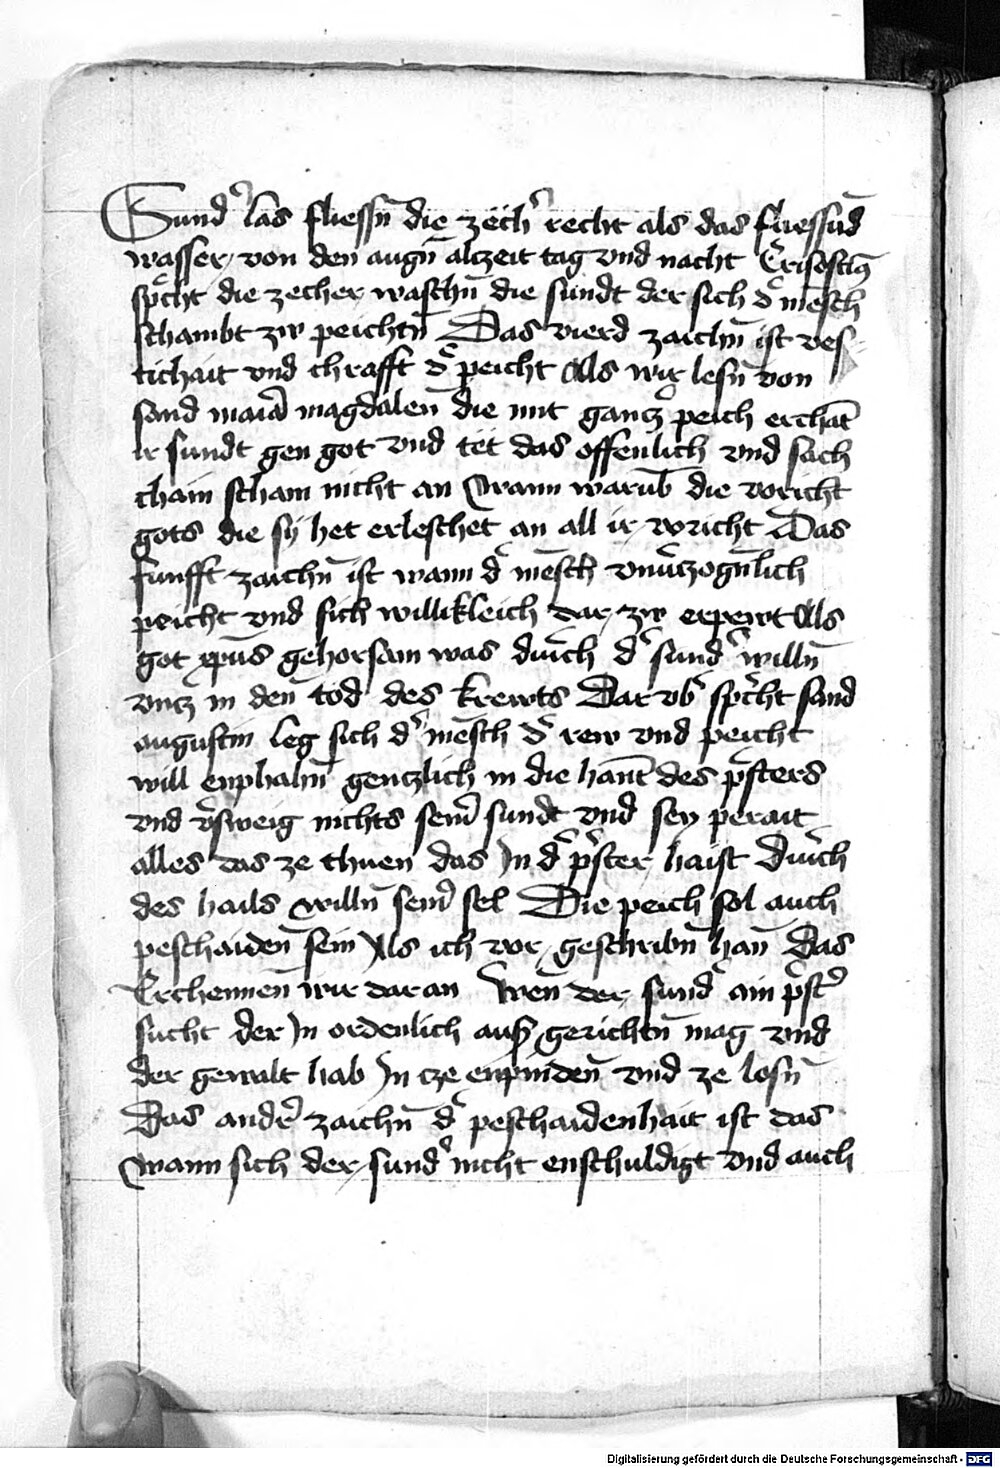 Sundˀ las fliessn̄ die zechˀ recht als das fliessūd
wasser von den augn̄ alzeit tag vnd nacht Crisostimꝰ
spͥcht die zecher waschn̄ die sundt der sich dˀ mēsch
schambt zw peichtn̄ Das vierd zaichn̄ ist ves
tichait vnd chrafft dˀ peicht Als wir lesn̄ von
sand mariā magdalen̄ die mit ganczˀ peich erchāt
ir sundt gen got vnd tet das offenlich vnd sach
chain scham nicht an Wann warūb die voricht
gots die sy het erleschet an all ir voricht Das
funfft zaichn̄ ist wann dˀ mēsch vnuˀczogn̄lich
peicht vnd sich willikleich dar zw erpewt Als
got xp̄us gehorsam was durch dˀ sundˀ willn̄
vncz in den tod des krewts Dar vbˀ spͥcht sand
augustin leg sich dˀ mēsch dˀ rew vnd peicht
will enphahn̄ genczlich in die hant des pͥsters
vnd vˀsweig nichts seinˀ sundt vnd sey perait
alles das ze thuen das In dˀ pͥster haist Durch
des hails willn̄ seinˀ sel Die peich sol auch
peschaiden̄ sein Als ich vor geschribn̄ han̄ Das
Erchennen̄ wir daran Wen̄ der sundˀ ain pͥstˀ
sucht der In ordenlich auß gerichtn̄ mag vnd
der gewalt hab In cze enpinden̄ vnd ze losn̄
Das andˀ zaichn̄ dˀ peschaidenhait ist das
Wann sich der sundˀ nicht enschuldigt vnd auch
Digitalisierung gefördert durch die Deutsche Forschungsgemeinschaft - DFG